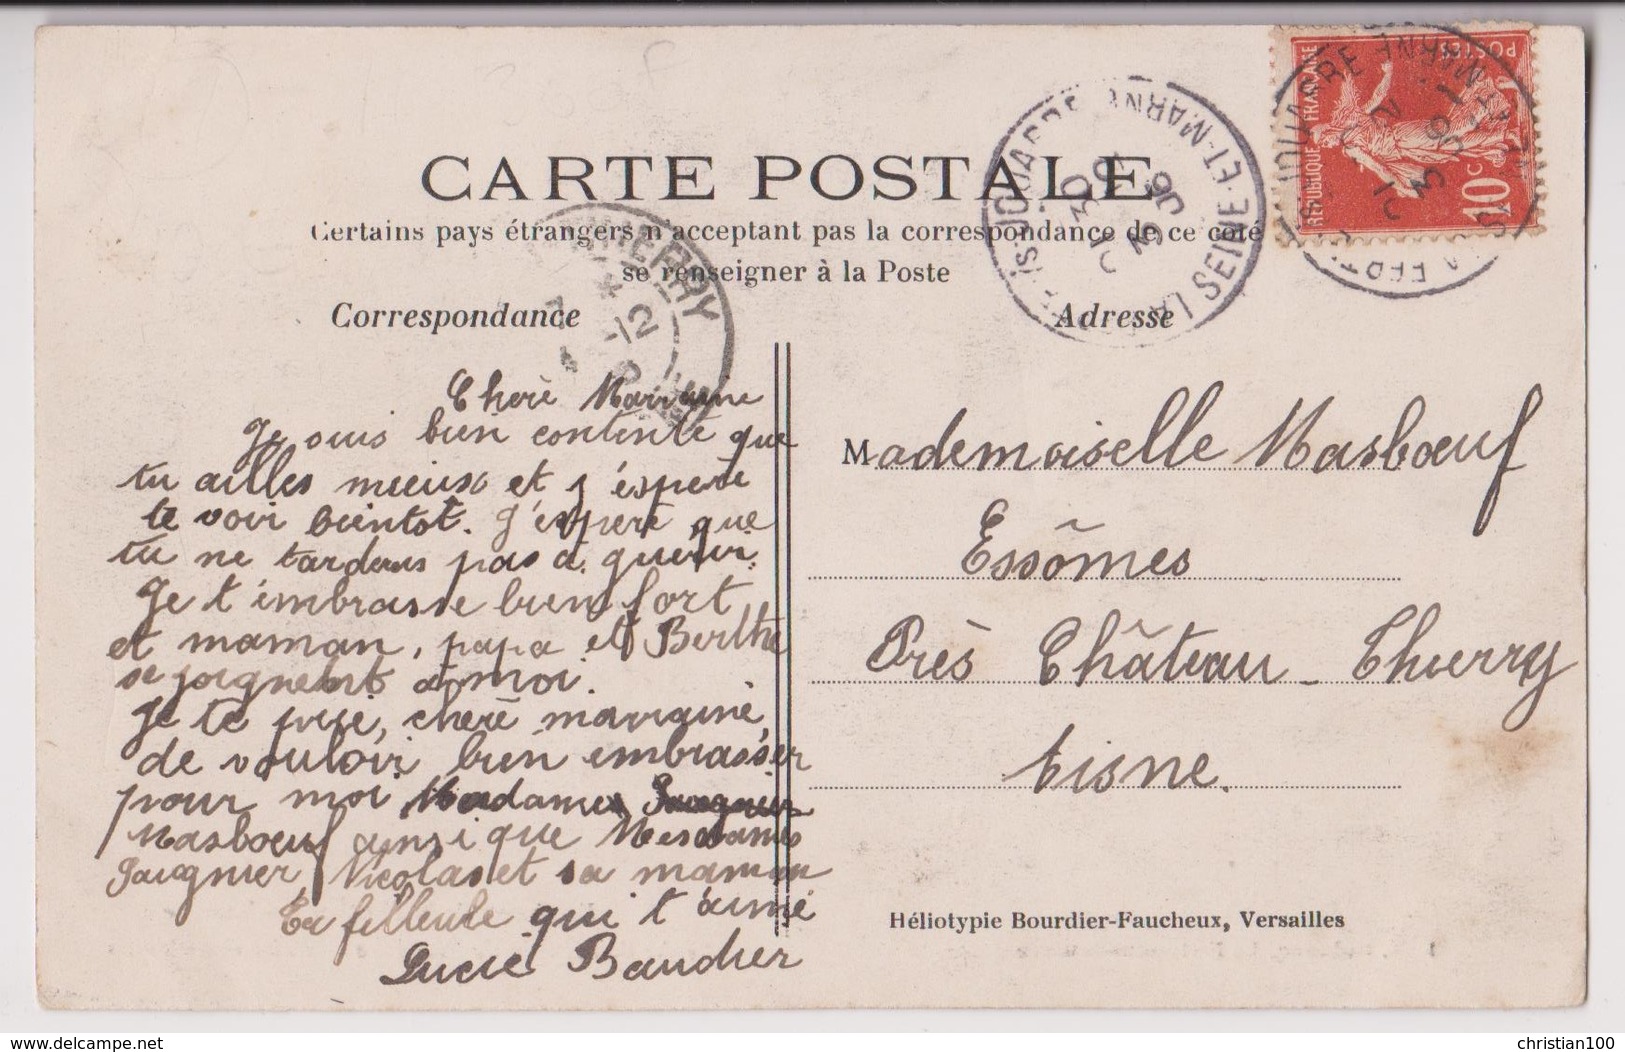 CARTE POSTALE
Certains pays étrangers n'acceptent pas la correspondance de ce côté
se renseigner à la Poste
Correspondance
Adresse
Cherè Marraine
Je suis bien contente que
tu ailles mieux et j'éspère
te voir bientot. J'éspère que
tu ne tardeus pas a guérir.
Je t'embrasse bien fort
et maman, papa et Berthe
se joignent a moi.
Je te prie, cherè marraine,
de vouloir bien embrasser
pour moi Madame
Masboeuf ainsi que Mesdames
Jaugnier, Nicolas et sa maman
Ta filleule qui t'aime
Lucie Baudier
Mademoiselle Masbœuf
Essômes
Près Château-Thierry
Aisne.
Héliotypie Bourdier-Faucheux, Versailles
REPUBLIQUE FRANÇAISE
POSTES
10c
SEINE-ET-MARNE
THIERRY
delcampe.net
christian100